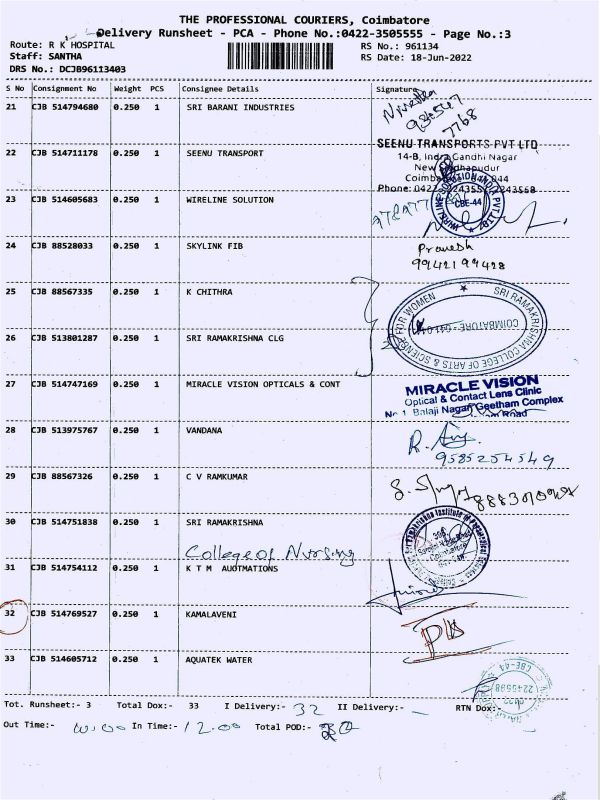 THE PROFESSIONAL COURIERS, Coimbatore
Delivery Runsheet - PCA - Phone No.:0422-3505555 - Page No.:3
Route: R K HOSPITAL RS No.: 961134
Staff: SANTHA RS Date: 18-Jun-2022
DRS No.: DCJB96113403
S No Consignment No Weight PCS Consignee Details Signature
21 CJB 514794680 0.250 1 SRI BARANI INDUSTRIES
7768
SEENU TRANSPORTS PVT LTD
22 CJB 514711178 0.250 1 SEENU TRANSPORT 14-B, Indra Gandhi Nagar
New
Phone: 0422
23 CJB 514605683 0.250 1 WIRELINE SOLUTION CBE-44
24 CJB 88528033 0.250 1 SKYLINK FIB Pravesh
9942199428
25 CJB 88567335 0.250 1 K CHITHRA
SRI RAMAKRISHNA COLLEGE OF ARTS & SCIENCE FOR WOMEN
COIMBATORE
26 CJB 513801287 0.250 1 SRI RAMAKRISHNA CLG
27 CJB 514747169 0.250 1 MIRACLE VISION OPTICALS & CONT MIRACLE VISION
Optical & Contact Lens Clinic
No 1 Balaji Nagar Geetham Complex
Road
28 CJB 513975767 0.250 1 VANDANA
9585254549
29 CJB 88567326 0.250 1 C V RAMKUMAR
30 CJB 514751838 0.250 1 SRI RAMAKRISHNA
College of Nursing
31 CJB 514754112 0.250 1 K T M AUOTMATIONS
32 CJB 514769527 0.250 1 KAMALAVENI
33 CJB 514605712 0.250 1 AQUATEK WATER
CBE-44
Tot. Runsheet:- 3 Total Dox:- 33 I Delivery:- 32 II Delivery:- RTN Dox:-
Out Time:- 10.00 In Time:- 12.00 Total POD:-